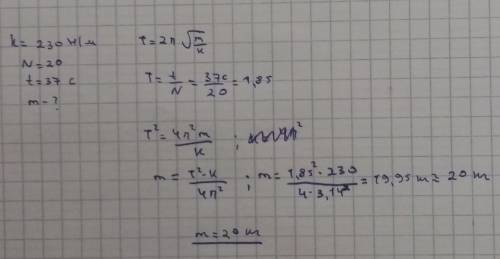 k = 230 н/м
N = 20
t = 37 c
m - ?
T = 2π √(m/k)
T = t/N = 37c/20 = 1,85
T² = 4π²m/k ;
m = T²·k/4π² ; m = 1,85²·230/4·3,14² = 19,95 m ≈ 20 m
m = 20 m